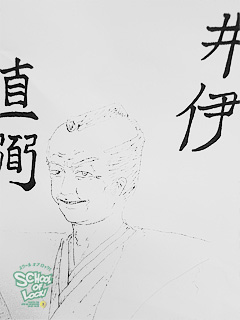 井伊
直弼
SCHOOL
OF
LOCK!